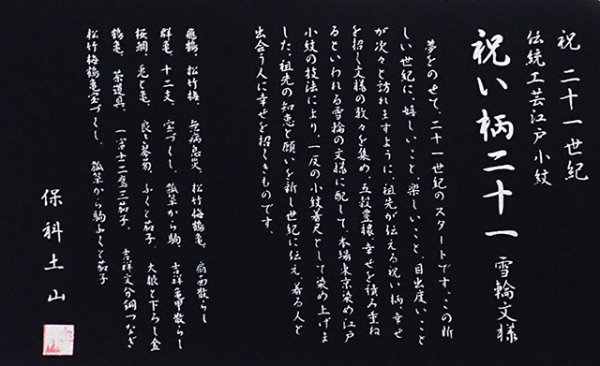 祝 二十一世紀
伝統工芸江戸小紋
祝い柄二十一 雪輪文様
夢をのせて、二十一世紀のスタートです。この新
しい世紀に、嬉しいこと、楽しいこと、目出度いこと
が次々と訪れますように、祖先が伝える祝い柄、幸せ
を招く文様の数々を集め、五穀豊穣、幸せを積み重ね
るといわれる雪輪の文様に配して、本場東京染め江戸
小紋の技法により、一反の小紋着尺として染め上げま
した。祖先の知恵と願いを新し世紀に伝え、着る人と
出会う人に幸せを招くきものです。
飛鶴、松竹梅、無病息災、松竹梅鶴亀、扇面散らし
群亀、十二支、宝づくし、瓢箪から駒、吉祥亀甲散らし
桜鯛、兎と亀、良き琴菊、ふくと茄子、大根と下ろし金
鶴亀、茶道具、一富士二鷹三茄子、吉祥文分銅つなぎ
松竹梅鶴亀宝づくし、瓢箪から駒ふくと茄子
保科土山